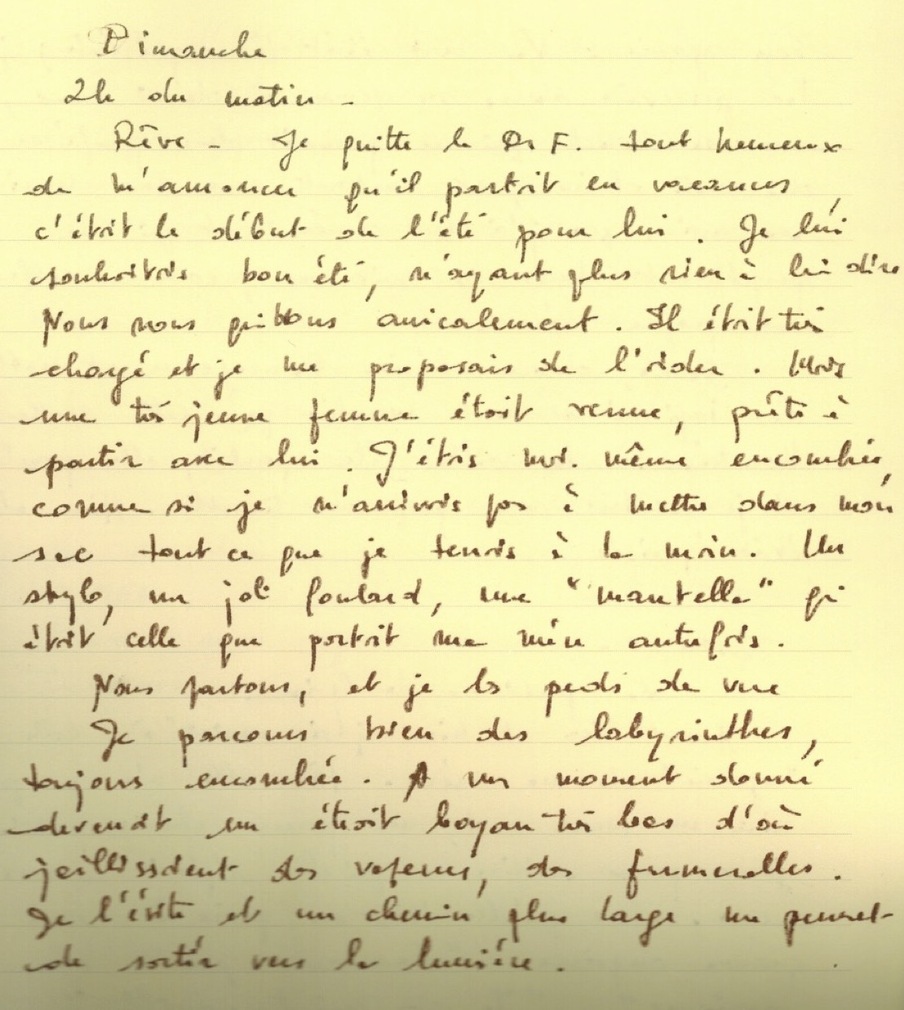 Dimanche
2h du matin -
Rêve - Je quitte le Dr F. tout heureux
de m'annoncer qu'il partait en vacances,
c'était le début de l'été pour lui. Je lui
souhaitais bon été, n'ayant plus rien à lui dire
Nous nous quittons amicalement. Il était très
chargé et je me proposais de l'aider. Mais
une très jeune femme était venue, prête à
partir avec lui. J'étais moi-même encombrée,
comme si je n'arrivais pas à mettre dans mon
sac tout ce que je tenais à la main. Un
stylo, un joli foulard, une "mantelle" qui
était celle que portait ma mère autrefois.
Nous partons, et je les perds de vue
Je parcours bien des labyrinthes,
toujours encombrée. A un moment donné
devenait un étroit boyau très bas d'où
jaillissaient des vapeurs, des fumerolles.
Je l'évite et un chemin plus large me permet
de sortir vers la lumière.